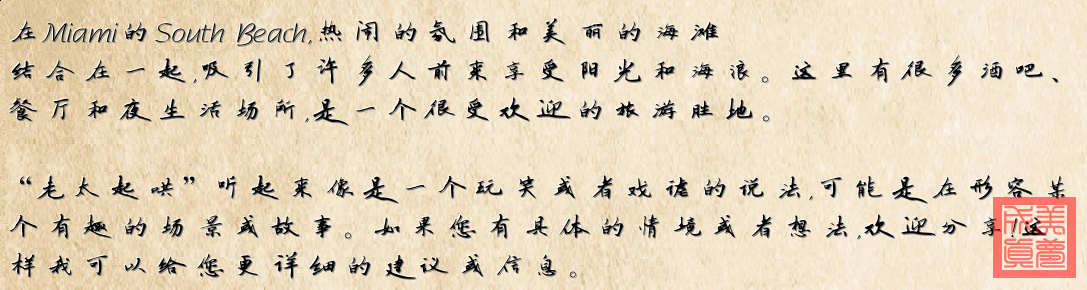 在Miami的South Beach,热闹的氛围和美丽的海滩
结合在一起,吸引了许多人前来享受阳光和海浪。这里有很多酒吧、
餐厅和夜生活场所,是一个很受欢迎的旅游胜地。
“老太起哄”听起来像是一个玩笑或者戏谑的说法,可能是在形容某
个有趣的场景或故事。如果您有具体的情境或者想法,欢迎分享!这
样我可以给您更详细的建议或信息。
美梦成真